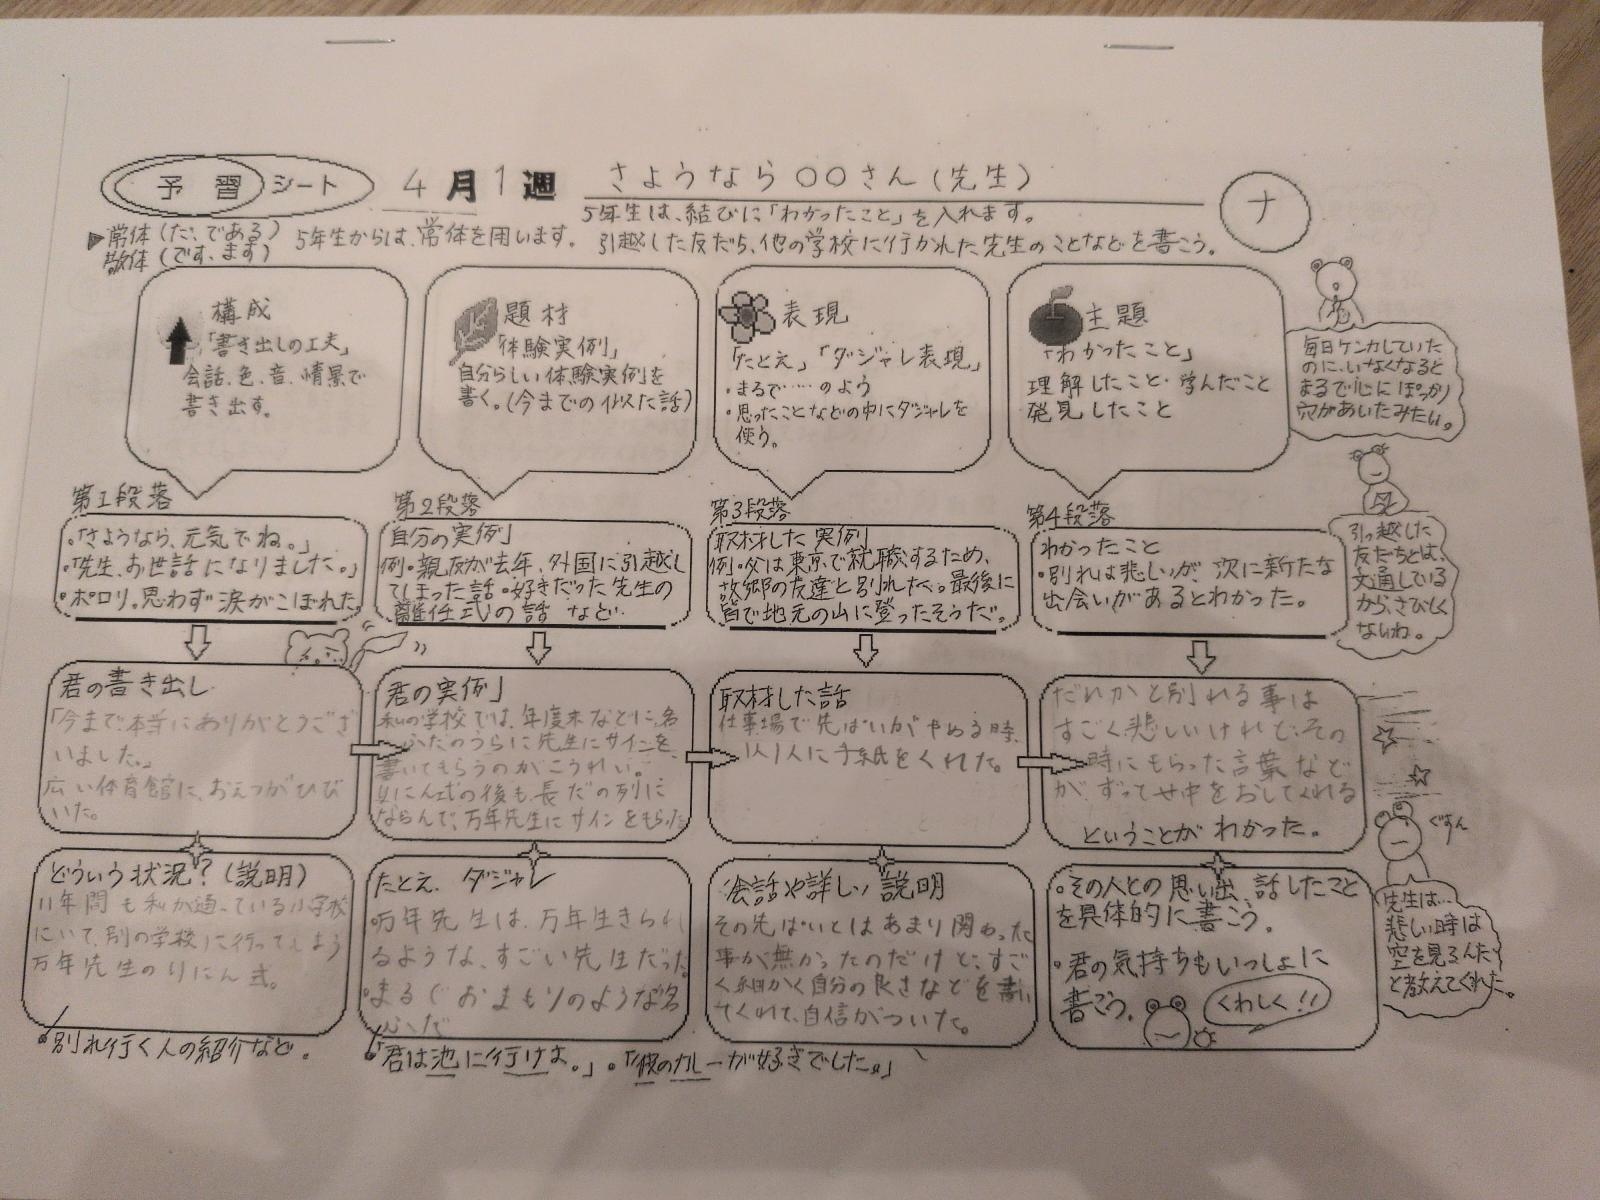 予習シート 4月1週 さようなら○○さん(先生)
ナ
5年生は、結びに「わかったこと」を入れます。
▶常体(だ、である) 5年生からは、常体を用います。 引越した友だち、他の学校に行かれた先生のことなどを書こう。
敬体(です、ます)
構成
「書き出しの工夫」
会話、色、音、情景で
書き出す。
題材
「体験実例」
自分らしい体験実例を
書く。(今までの似た話)
表現
「たとえ」「ダジャレ表現」
・まるで……のよう
・思ったことなどの中にダジャレを
使う。
主題
「わかったこと」
理解したこと・学んだこと
発見したこと
毎日ケンカしていた
のに、いなくなると
まるで心にぽっかり
穴があいたみたい。
第1段落
・「さようなら、元気でね。」
・「先生、お世話になりました。」
・ポロリ。思わず涙がこぼれた
第2段落
自分の実例」
例・親友が去年、外国に引越し
てしまった話・好きだった先生の
離任式の話 など
第3段落
取材した実例
例・父は東京で就職するため、
故郷の友達と別れた。最後に
皆で地元の山に登ったそうだ。
第4段落
わかったこと
・別れは悲しいが、次に新たな
出会いがあるとわかった。
引っ越した
友だちとは、
文通している
から、さびしく
ないね。
君の書き出し
「今まで本当にありがとうござ
いました。」
広い体育館に、おえつがひび
いた。
君の実例」
私の学校では、年度末などに、名
ふだのうらに先生にサインを
書いてもらうのがこうれい。
りにん式の後も、長だの列に
ならんで、万年先生にサインをもらった
取材した話
仕事場で先ぱいがやめる時、
1人1人に手紙をくれた。
だれかと別れる事は
すごく悲しいけれど、その
時にもらった言葉など
が、ずっとせ中をおしてくれる
ということがわかった。
ぐすん
どういう状況?(説明)
11年間も私が通っている小学校
にいて、別の学校に行ってしまう
万年先生のりにん式。
・別れ行く人の紹介など。
たとえ、ダジャレ
・万年先生は、万年生きられ
るような、すごい先生だった。
・まるでおまもりのような名
ふだ
・「君は池に行けよ。」・「彼のカレーが好きでした。」
会話や詳しい説明
その先ぱいとはあまり関わった
事が無かったのだけど、すご
く細かく自分の良さなどを書い
てくれて、自信がついた。
・その人との思い出、話したこと
を具体的に書こう。
・君の気持ちもいっしょに
書こう。
くわしく!!
先生は…
悲しい時は
空を見るんだ
と教えてくれた。